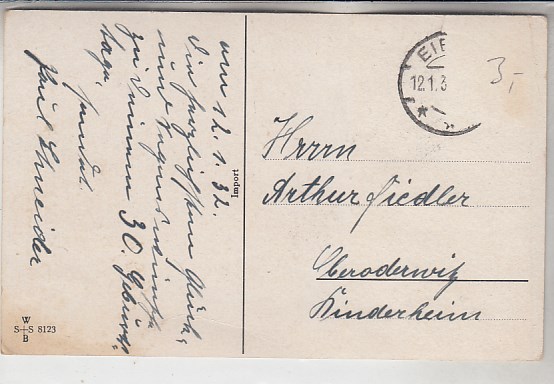 den 12. 1. 32.
Die herzlichsten Glück-
und Segenswünsche
zu Deinem 30. Geburts-
tage.
Paul Schneider
Import
W
S+S 8123
B
EIB
12.1.3
3,-
Herrn
Arthur Fiedler
Oberoderwitz
Kinderheim